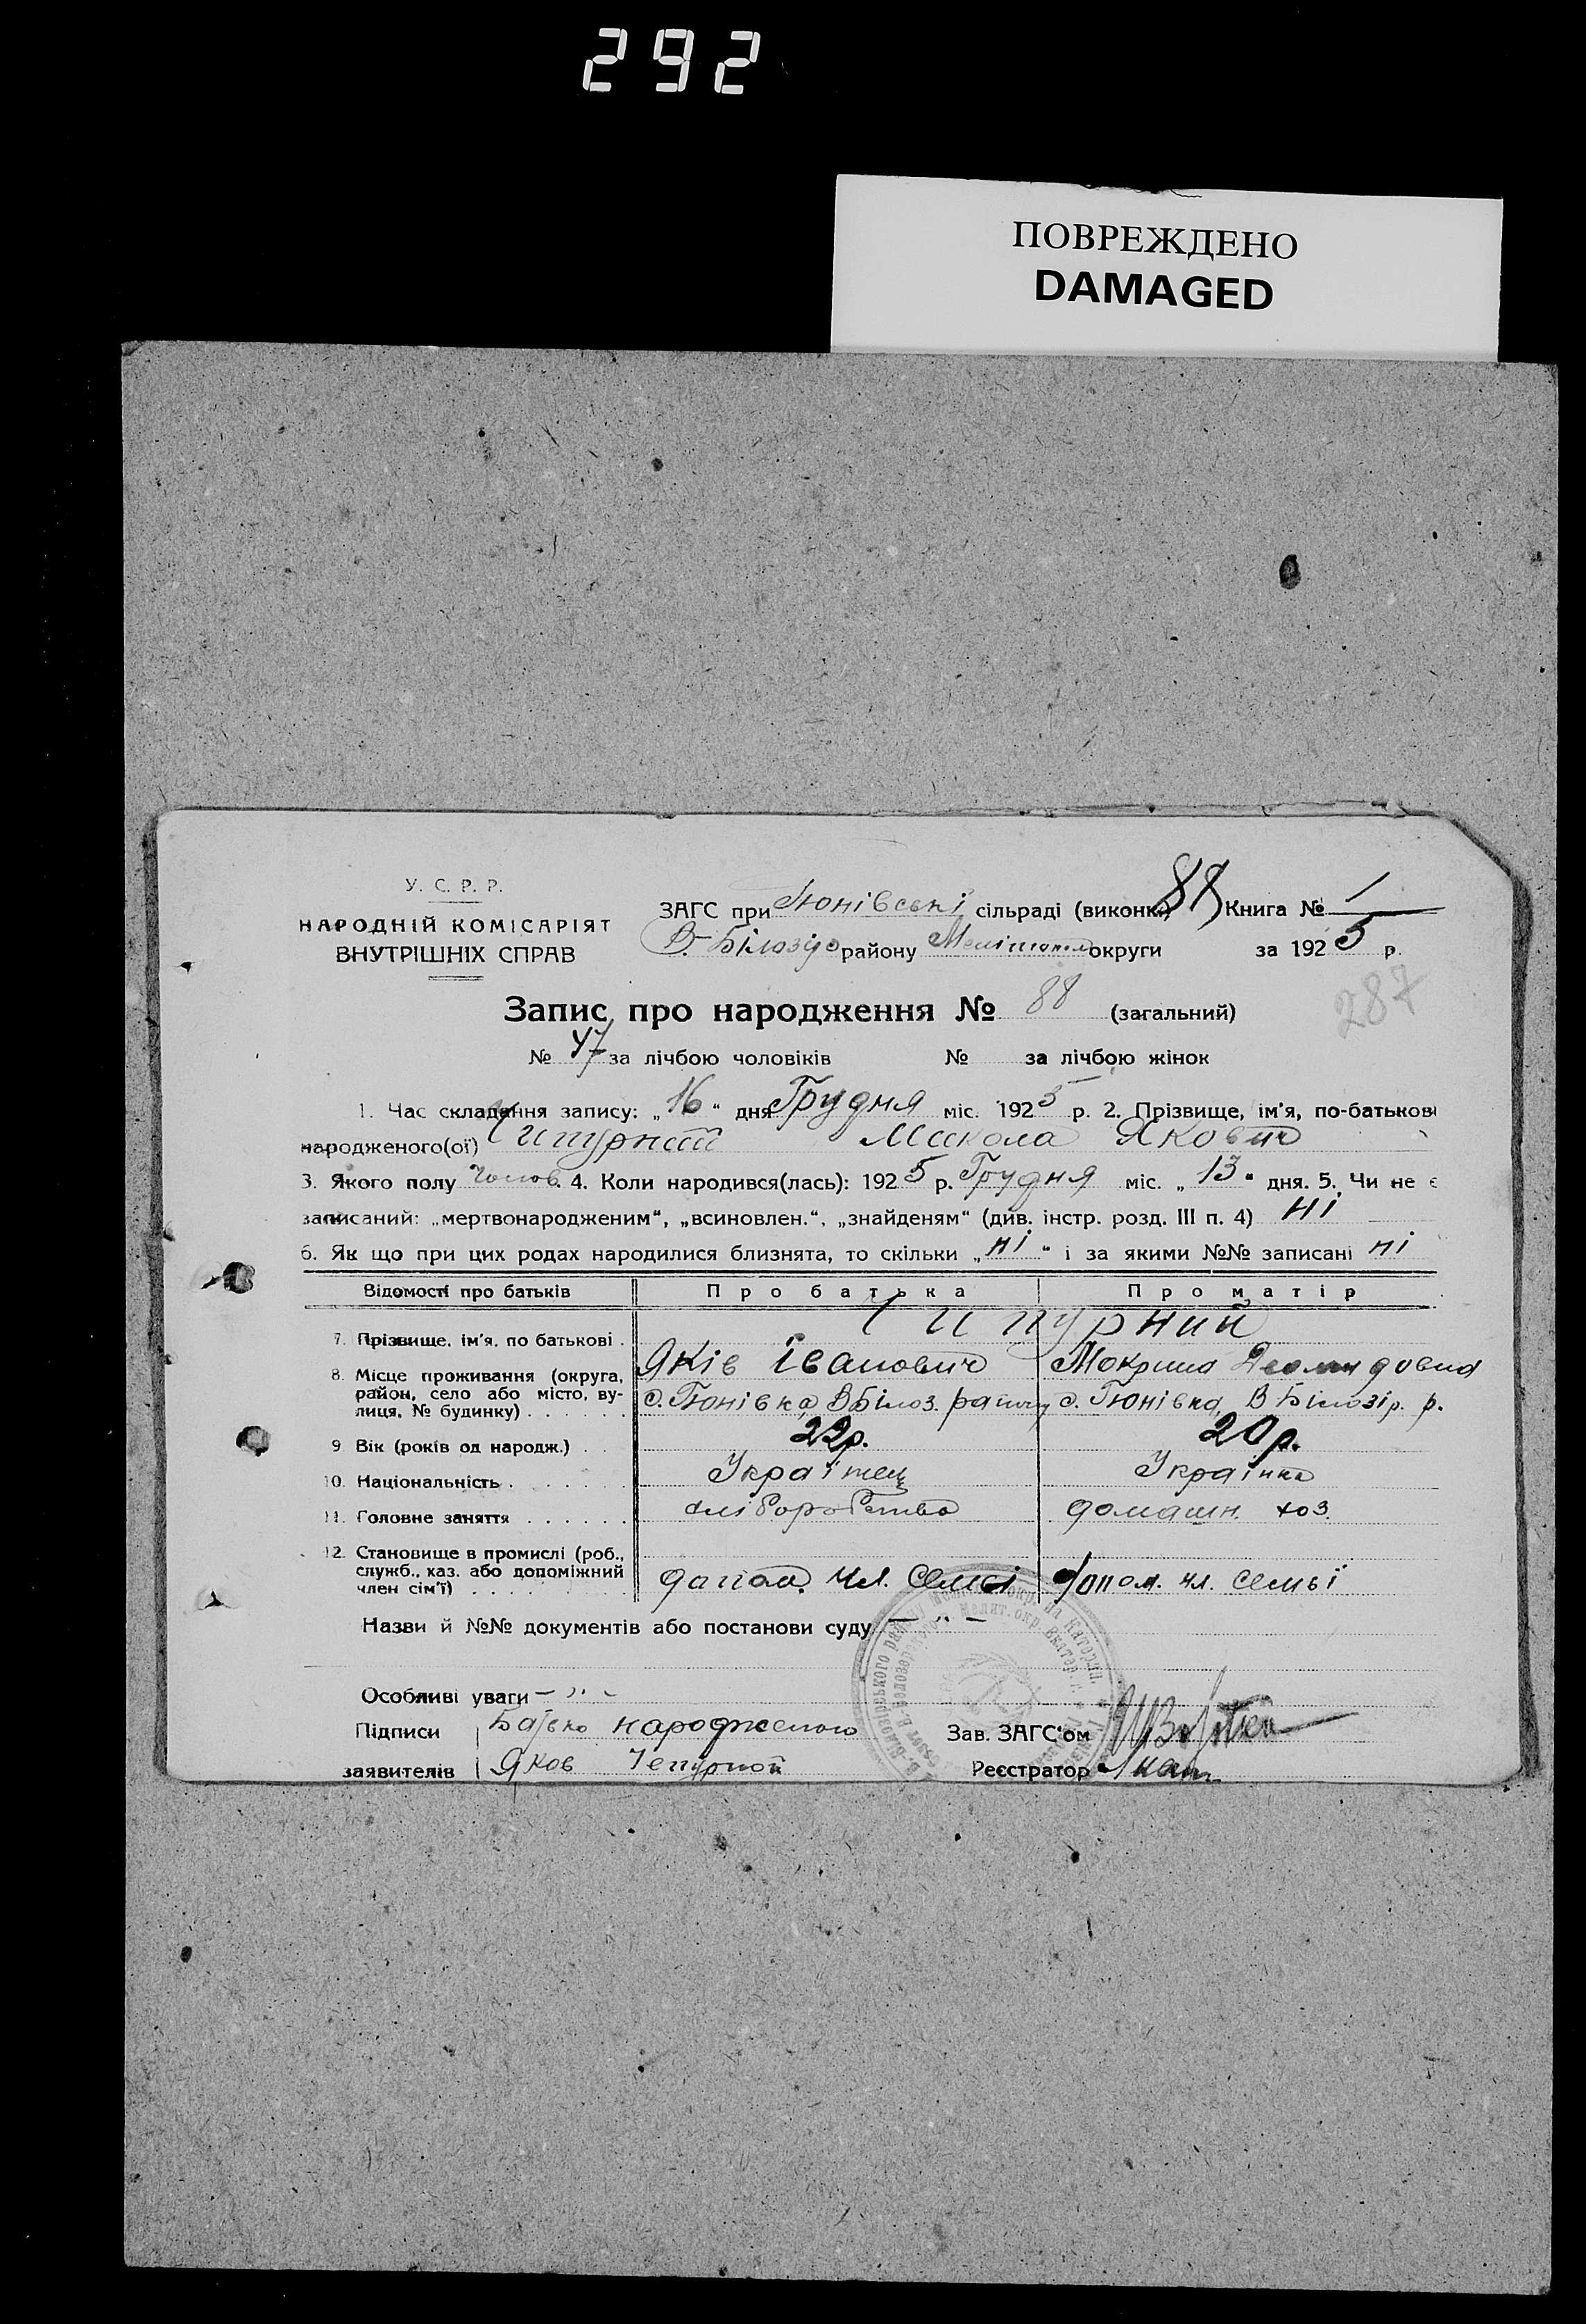 292
ПОВРЕЖДЕНО
DAMAGED
У. С. Р. Р.
НАРОДНІЙ КОМІСАРІЯТ
ВНУТРІШНІХ СПРАВ
ЗАГС при Гюнівські сільраді (виконк.) 88 Книга № 1
В. Білозір району Мелітопол округи за 1925 р.
287
Запис про народження № 88 (загальний)
№ 47 за лічбою чоловіків № за лічбою жінок
1. Час складання запису: „16“ дня Грудня міс. 1925 р. 2. Прізвище, ім'я, по-батькові
народженого(ої) Чипурний Микола Якович
3. Якого полу Чолов. 4. Коли народився(лась): 1925 р. Грудня міс. „13“ дня. 5. Чи не є
записаний: „мертвонародженим“, „всиновлен.“, „знайденям“ (див. інстр. розд. III п. 4) Ні
6. Як що при цих родах народилися близнята, то скільки „Ні“ і за якими №№ записані Ні
Відомості про батьків Про батька Про матір
Чипурний
7. Прізвище, ім'я, по батькові . Яків Іванович Мокрина
8. Місце проживання (округа, район, село або місто, вулиця, № будинку) . . . . . . с. Гюнівка, В Білоз. району с. Гюнівка, В Білозір. р.
9 Вік (років од народж.) . . 22р. 20р.
10. Національність . . . . . . Українец Українка
11. Головне заняття . . . . . . хліборобство домашн. хоз.
12. Становище в промислі (роб., служб., хаз. або допоміжний член сім'ї) . . . . . . . . допом. чл. семьі допом. чл. семьї
Назви й №№ документів або постанови суду — " —
Особливі уваги — " —
Підписи Батько народженого Зав. ЗАГС'ом
заявителів Яков Чепурной Реєстратор